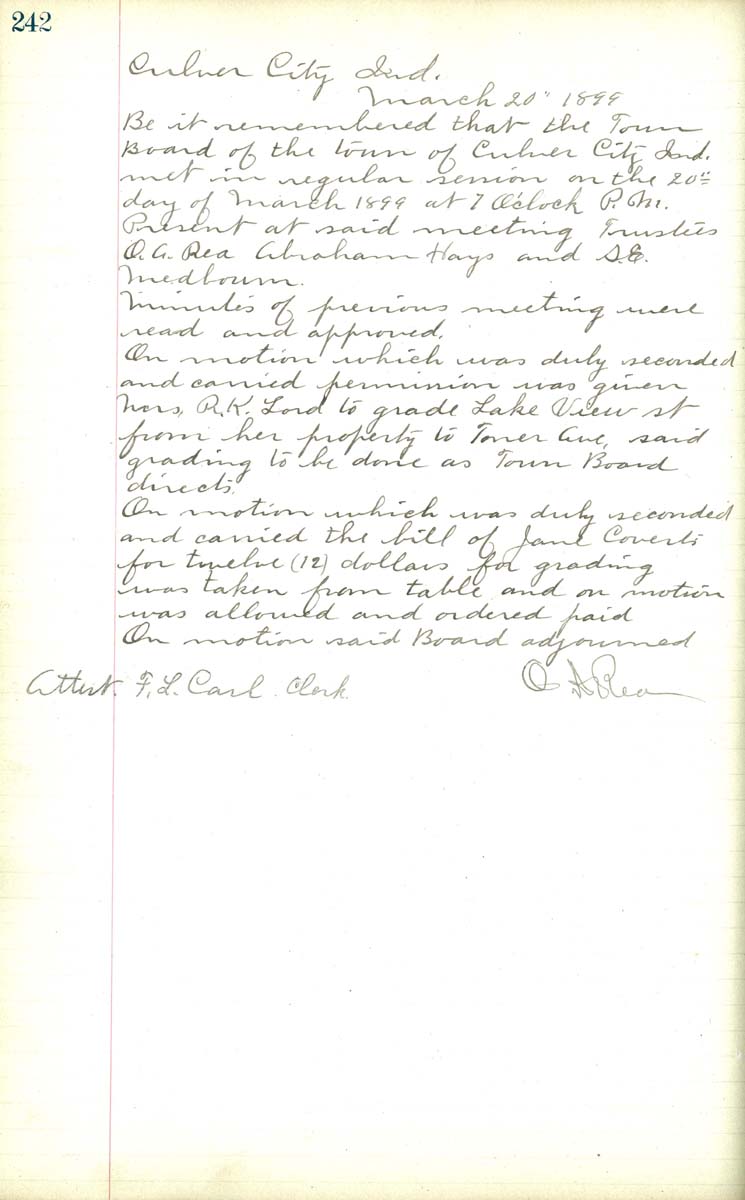 242
Culver City Ind.
March 20" 1899
Be it remembered that the Town
Board of the town of Culver City Ind.
met in regular session on the 20"
day of March 1899 at 7 O'clock P.M.
Present at said meeting Trustees
O.A. Rea Abraham Hays and S.E.
Medbourn.
Minutes of previous meeting were
read and approved.
On motion which was duly seconded
and carried permission was given
Mrs. R.K. Lord to grade Lake View st
from her property to Toner Ave, said
grading to be done as Town Board
directs.
On motion which was duly seconded
and carried the bill of Jane Coverts
for twelve (12) dollars for grading
was taken from table and on motion
was allowed and ordered paid
On motion said Board adjourned
Attest. F.L. Carl Clerk. O A Rea